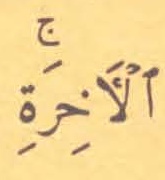 ٱلْأَخِرَةِۚ